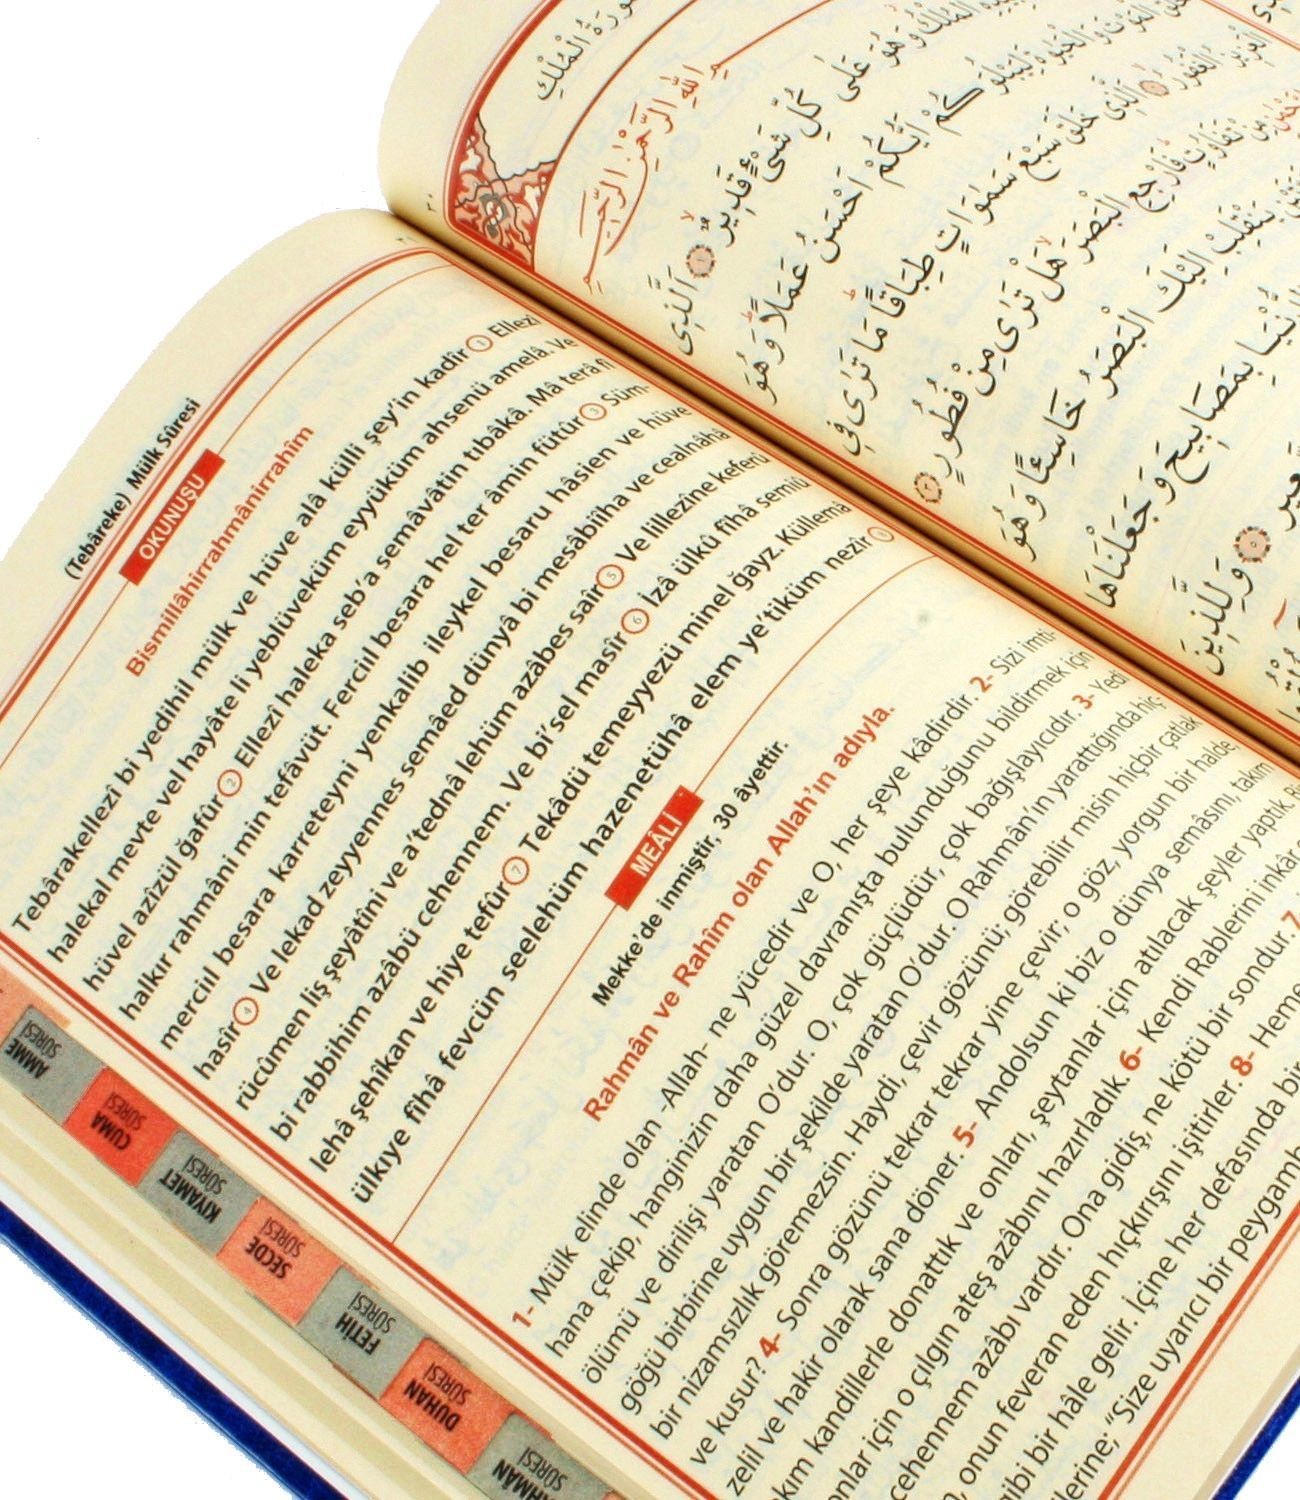 (Tebâreke) Mülk Sûresi
OKUNUŞU
Bismillâhirrahmânirrahîm
Tebârakellezî bi yedihil mülk ve hüve alâ külli şey'in kadîr 1 Ellezî
halekal mevte vel hayâte li yeblüveküm eyyüküm ahsenü amelâ. Ve
hüvel azîzül ğafûr 2 Ellezî haleka seb'a semâvâtin tıbâkâ. Mâ terâ fî
halkır rahmâni min tefâvüt. Ferciıl besara hel ter âmin fütûr 3 Süm-
merciıl besara karreteyni yenkalib ileykel besaru hâsien ve hüve
hasîr 4 Ve lekad zeyyennes semâed dünyâ bi mesâbiîha ve cealnâhâ
rücûmen liş şeyâtîni ve a'tednâ lehüm azâbes saîr 5 Ve lillezîne keferû
bi rabbihim azâbü cehennem. Ve bi'sel masîr 6 İzâ ülkû fîhâ semiû
lehâ şehîkan ve hiye tefûr 7 Tekâdü temeyyezü minel ğayz. Küllemâ
ülkıye fîhâ fevcün seelehüm hazenetühâ elem ye'tiküm nezîr 8
MEÂLİ
Mekke'de inmiştir, 30 âyettir.
Rahmân ve Rahîm olan Allah'ın adıyla.
1- Mülk elinde olan -Allah- ne yücedir ve O, her şeye kâdirdir. 2- Sizi imti-
hana çekip, hanginizin daha güzel davranışta bulunduğunu bildirmek için
ölümü ve dirilişi yaratan O'dur. O, çok güçlüdür, çok bağışlayıcıdır. 3- Yedi
göğü birbirine uygun bir şekilde yaratan O'dur. O Rahmân'ın yarattığında hiç-
bir nizamsızlık göremezsin. Haydi, çevir gözünü; görebilir misin hiçbir çatlak
ve kusur? 4- Sonra gözünü tekrar tekrar yine çevir; o göz, yorgun bir halde,
zelil ve hakir olarak sana döner. 5- Andolsun ki biz o dünya semâsını, takım
kım kandillerle donattık ve onları, şeytanlar için atılacak şeyler yaptık.
onlar için o çılgın ateş azâbını hazırladık. 6- Kendi Rablerini inkâr
cehennem azâbı vardır. Ona gidiş, ne kötü bir sondur. 7
onun feveran eden hıçkırışını işitirler. 8- Heme
gibi bir hâle gelir. İçine her defasında bir
lerine; "Size uyarıcı bir peygamb
AMME
SÛRESİ
CUMA
SÛRESİ
KIYAMET
SÛRESİ
SECDE
SÛRESİ
FETİH
SÛRESİ
DUHAN
SÛRESİ
HMÂN
SÛRESİ
سُورَةُ الْمُلْكِ
اللهِ الرَّحْمٰنِ الرَّحِيمِ
الْمُلْكُ وَهُوَ عَلٰى كُلِّ شَيْءٍ قَدِيرٌ ١ اَلَّذِى
الْمَوْتَ وَالْحَيٰوةَ لِيَبْلُوَكُمْ اَيُّكُمْ اَحْسَنُ عَمَلًا وَهُوَ
الْعَزِيزُ الْغَفُورُ ٢ اَلَّذِى خَلَقَ سَبْعَ سَمٰوَاتٍ طِبَاقًا مَا تَرٰى فِى
مِنْ تَفَاوُتٍ فَارْجِعِ الْبَصَرَ هَلْ تَرٰى مِنْ فُطُورٍ ٣
يَنْقَلِبْ اِلَيْكَ الْبَصَرُ خَاسِئًا وَهُوَ
الدُّنْيَا بِمَصَابِيحَ وَجَعَلْنَاهَا
السَّعِيرِ ٥ وَلِلَّذِينَ